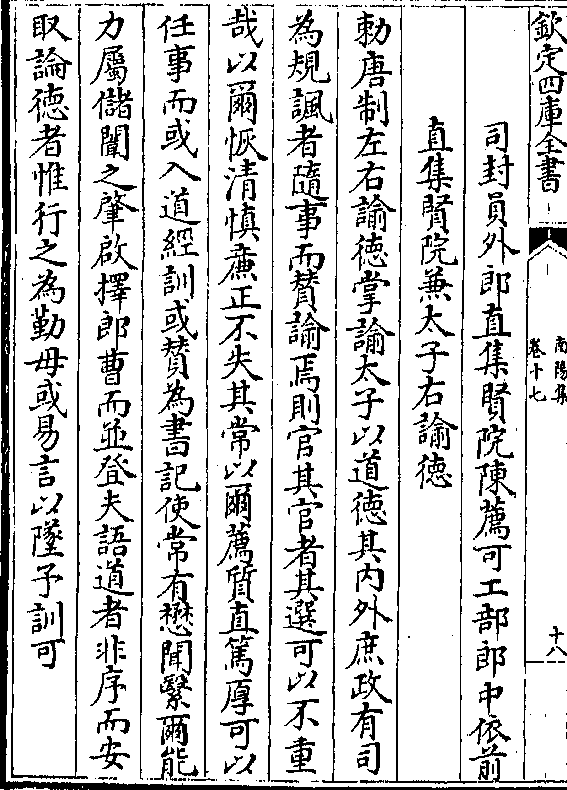 欽定四庫全書
南陽集
卷十七
十八
司封員外郎直集賢院陳薦可工部郎中依前
直集賢院兼太子右諭徳
勅唐制左右諭徳掌諭太子以道徳其内外庶政有司
為規諷者隨事而賛諭焉則官其官者其選可以不重
哉以爾恢清慎亷正不失其常以爾薦質直篤厚可以
任事而或入道經訓或賛為書記使常有懋聞繄爾能
力屬儲闈之肇啟擇郎曹而並登夫語道者非序而安
取論徳者惟行之為勤毋或易言以墜予訓可